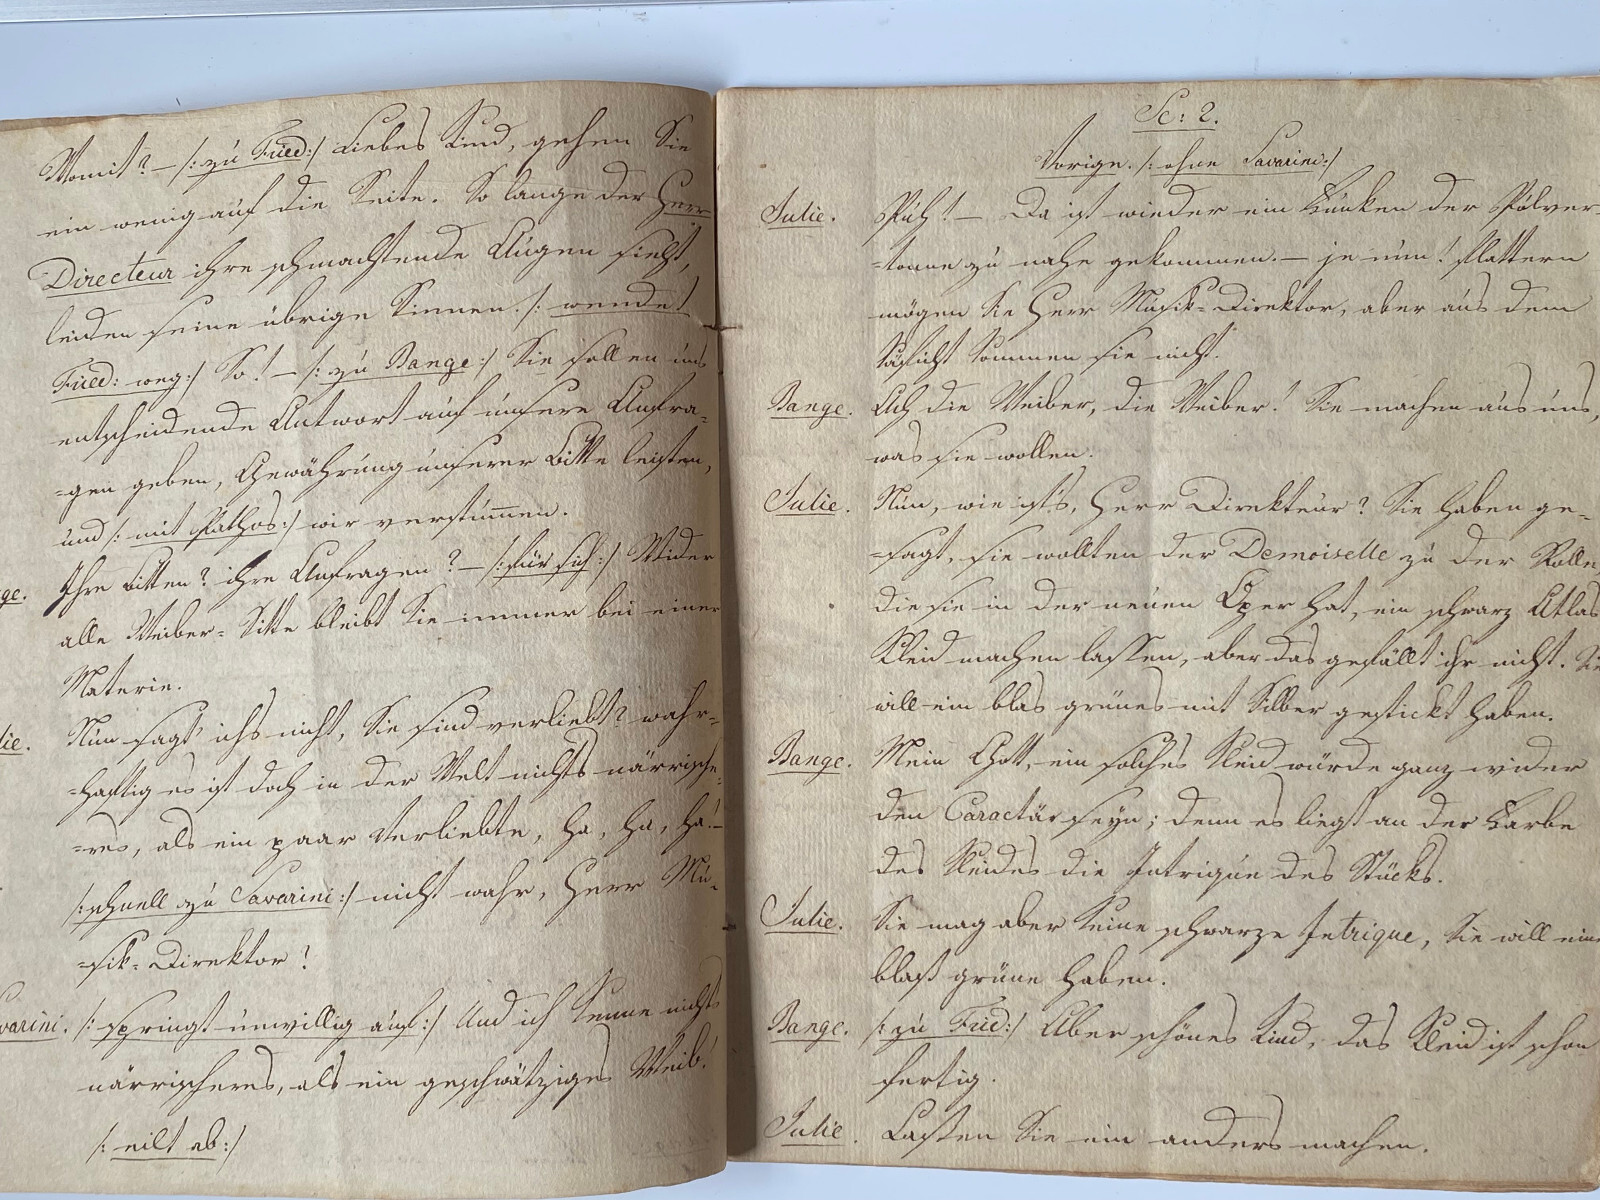 Womit? – /: zu Fried:/ Liebes Kind, gehen Sie
ein wenig auf die Seite. So lange der Herr
Directeur ihre schmachtende Augen sieht,
leiden seine übrige Sinnen. /: wendet
Fried: weg:/ So! – /: zu Bange:/ Sie sollen uns
entscheidende Antwort auf unsere Anfra=
=gen geben, Gewährung unserer Bitte leisten,
und /: mit Pathos:/ wir verstummen.
ge. Ihre Bitten? ihre Anfragen? – /: für sich:/ Wider
alle Weiber= Sitte bleibt Sie immer bei einer
Materie.
lie. Nun sagt' ichs nicht, Sie sind verliebt? wahr=
=haftig es ist doch in der Welt nichts närrische=
=res, als ein paar Verliebte, ha, ha, ha! –
/: schnell zu Savarini:/ nicht wahr, Herr Mu=
=sik= Direktor?
varini. /: springt unwillig auf:/ Und ich kenne nichts
närrischeres, als ein geschwätziges Weib!
/: eilt ab:/
Sc: 2.
Vorige. /: ohne Savarini:/
Julie. Puh! – Da ist wieder ein Funken der Pulver=
=tonne zu nahe gekommen. – je nun! flattern
mögen Sie Herr Musik= Direktor, aber aus dem
kommen sie nicht.
Bange. Ach die Weiber, die Weiber! Sie machen aus uns,
was sie wollen.
Julie. Nun, wie ist's, Herr Direkteur? Sie haben ge=
=sagt, sie wollten der Demoiselle zu der Rolle
die sie in der neuen Oper hat, ein schwarz Atlas
Kleid machen lassen, aber das gefällt ihr nicht. Sie
will ein blas grünes mit Silber gestickt haben.
Bange. Mein Gott, ein solches Kleid würde ganz wider
den Caractär seyn; denn es liegt an der Farbe
des Kleides die Intrigue des Stücks.
Julie. Sie mag aber keine schwarze Intrique, Sie will eine
blaß grüne haben.
Bange. /: zu Fried:/ Aber schönes Kind, das Kleid ist schon
fertig.
Julie. Lassen Sie ein anders machen.